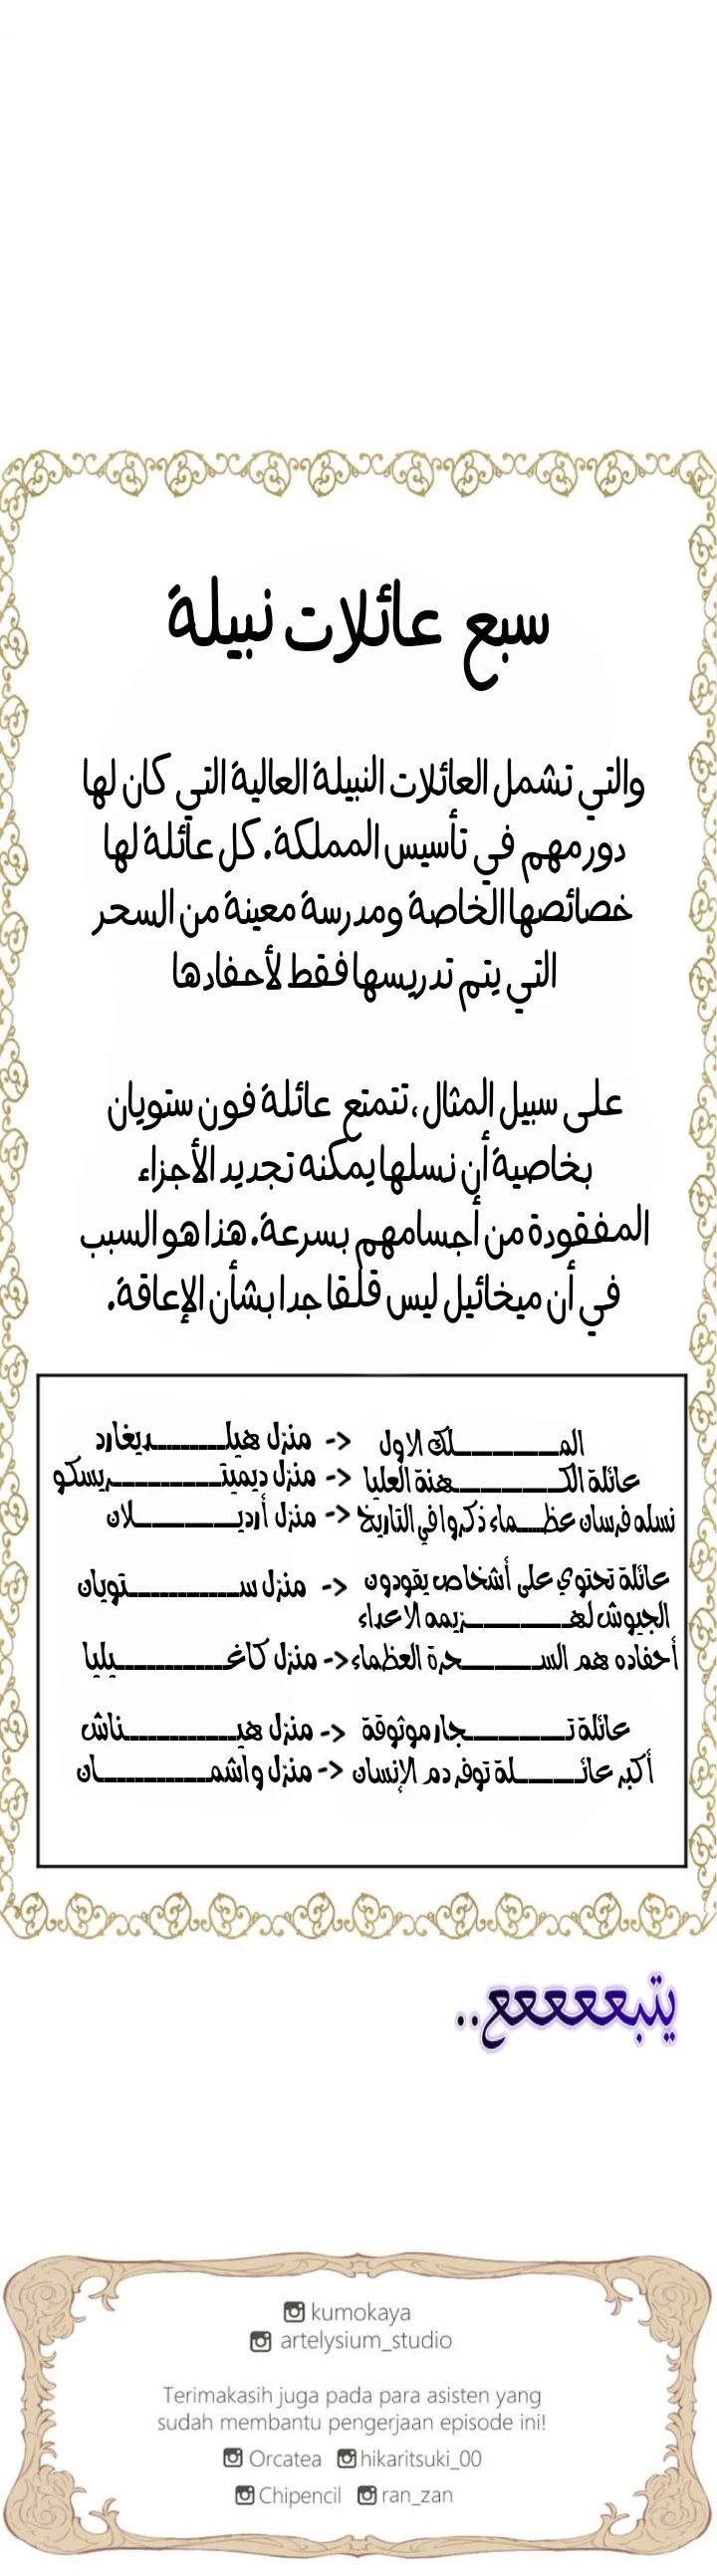 سبع عائلات نبيلة
والتي تشمل العائلات النبيلة العالية التي كان لها
دور مهم في تأسيس المملكة. كل عائلة لها
خصائصها الخاصة ومدرسة معينة من السحر
التي يتم تدريسها فقط لأحفادها
على سبيل المثال ، تتمتع عائلة فون ستويان
بخاصية أن نسلها يمكنه تجديد الأجزاء
المفقودة من أجسامهم بسرعة. هذا هو السبب
في أن ميخائيل ليس قلقا جدا بشأن الإعاقة.
المـــــــــلك الاول <- منزل هيلـــــــــديغارد
عائلة الكـــــــــهنة العليا <- منزل ديميتـــــــــريسكو
نسله فرسان عظـــــماء ذكروا في التاريخ <- منزل أرديـــــــــلان
عائلة تحتوي على أشخاص يقودون <- منزل ســـــــــتويان
الجيوش لهـــــــــزيمه الاعداء
أحفاده هم الســـــــــحرة العظماء <- منزل كاغـــــــــيليا
عائلة تـــــــــجار موثوقة <- منزل هيـــــــــناش
أكبر عائـــــــــلة توفر دم الإنسان <- منزل واشمـــــــــان
يتبععععع..
kumokaya
artelysium_studio
Terimakasih juga pada para asisten yang
sudah membantu pengerjaan episode ini!
Orcatea hikaritsuki_00
Chipencil ran_zan